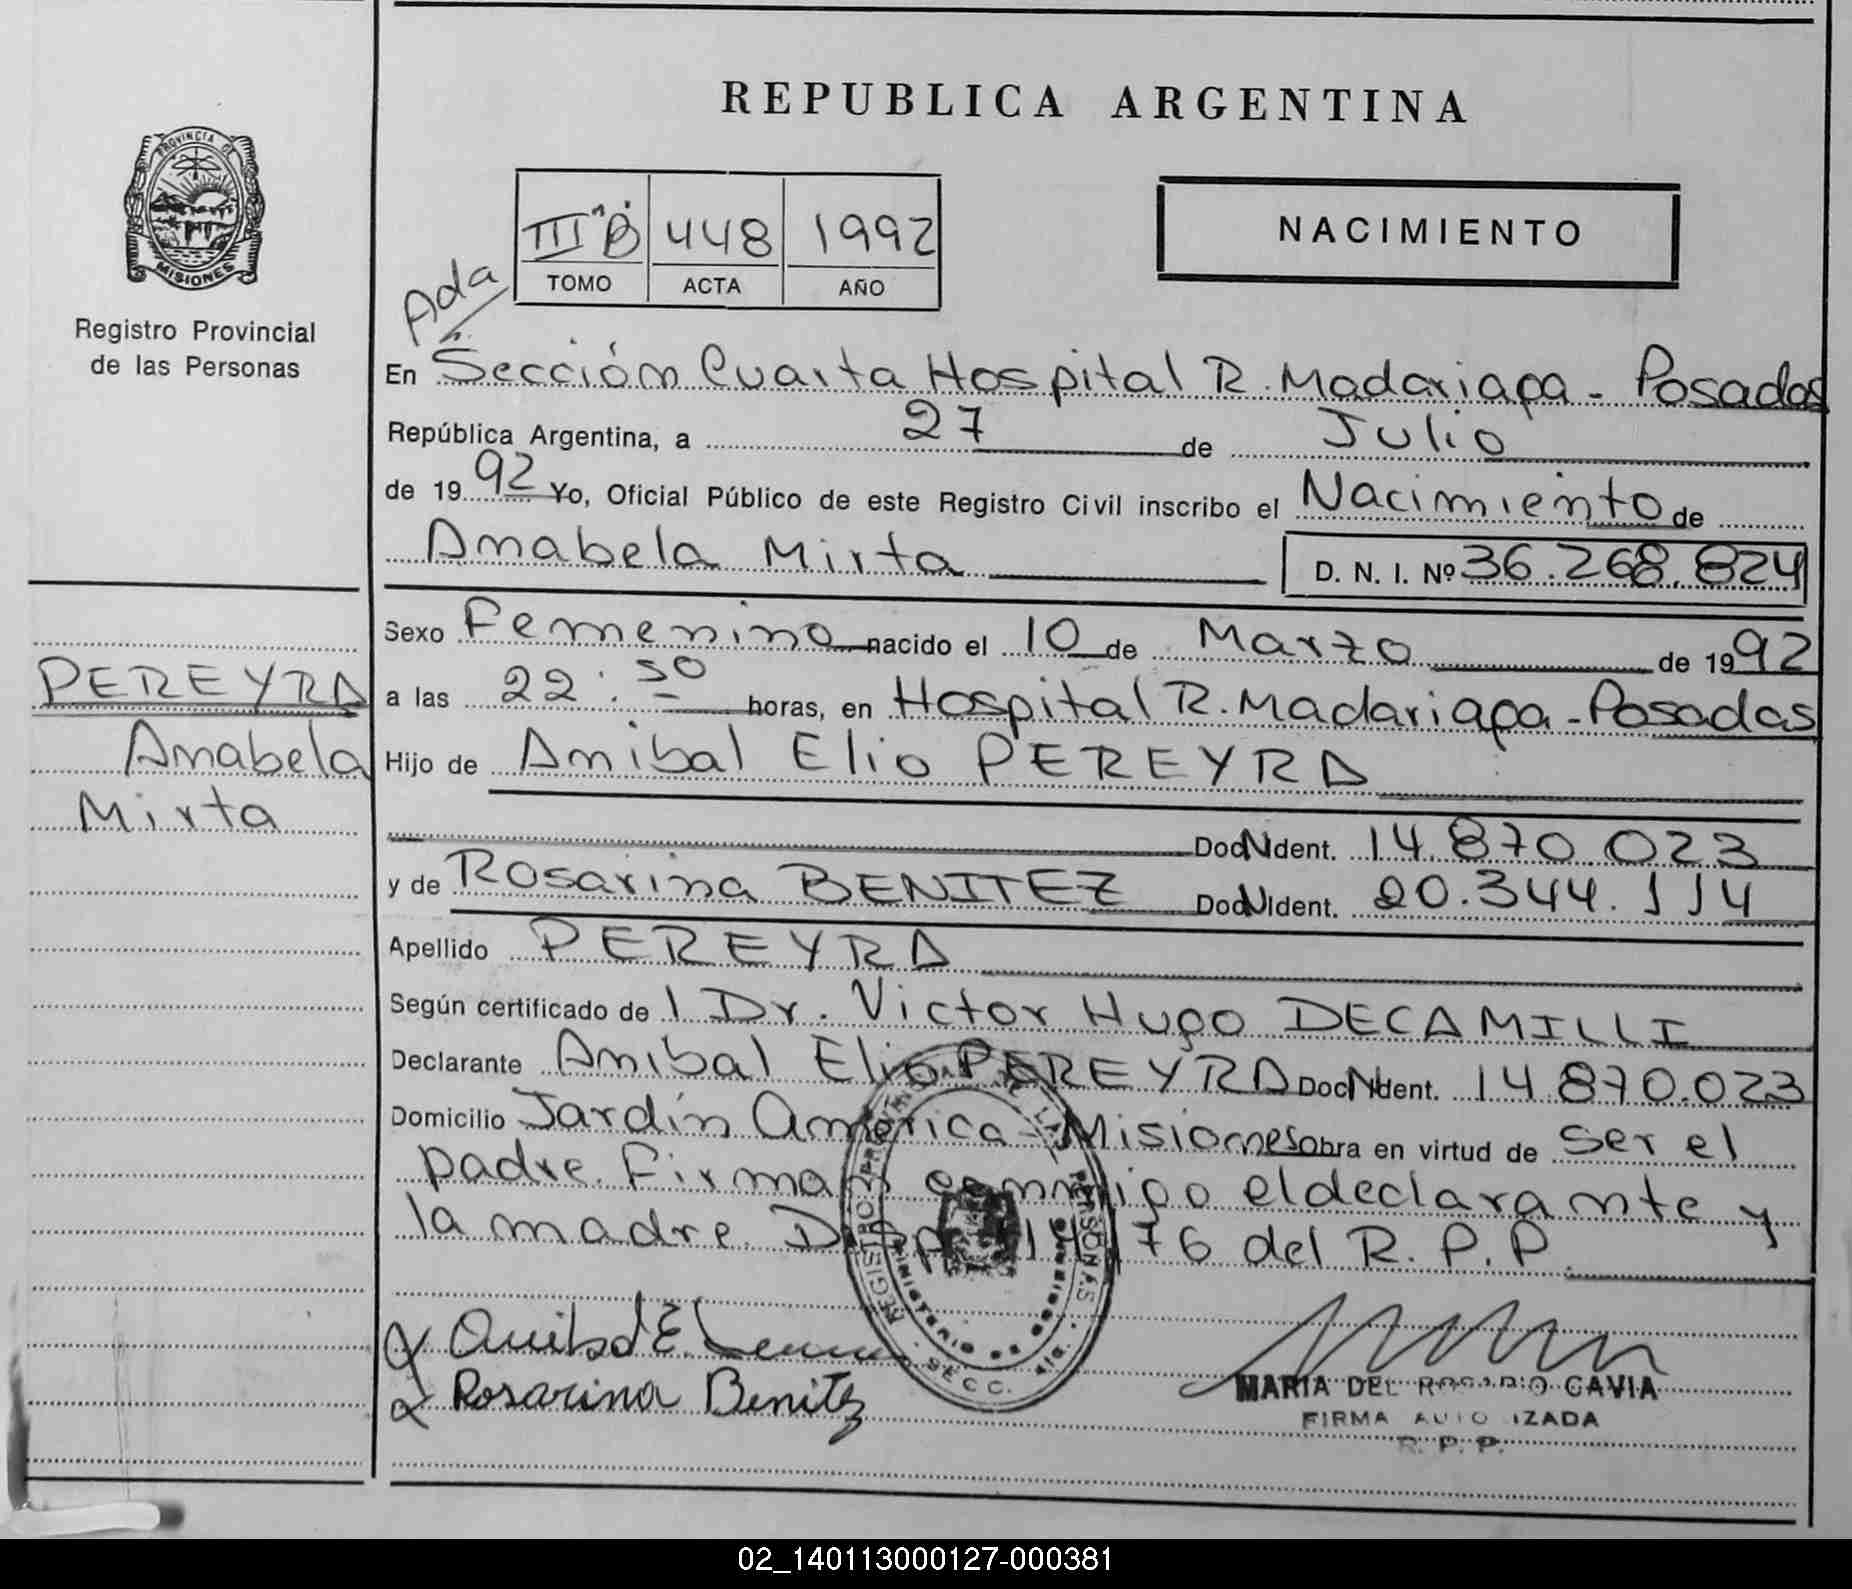 REPUBLICA ARGENTINA
PROVINCIA DE
MISIONES
Registro Provincial
de las Personas
III "B" 448 1992
TOMO ACTA AÑO
NACIMIENTO
Ada
En Sección Cuarta Hospital R. Madariaga - Posadas
República Argentina, a 27 de Julio
de 1992 Yo, Oficial Público de este Registro Civil inscribo el Nacimiento de
Anabela Mirta D. N. I. Nº 36.268.824
Sexo Femenino nacido el 10 de Marzo de 1992
PEREYRA
Anabela
Mirta
a las 22:30 horas, en Hospital R. Madariaga - Posadas
Hijo de Anibal Elio PEREYRA
Doc. Ident. 14.870.023
y de Rosarina BENITEZ Doc. Ident. 20.344.114
Apellido PEREYRA
Según certificado de l Dr. Victor Hugo DECAMILLI
Declarante Anibal Elio PEREYRA Doc. Ident. 14.870.023
Domicilio Jardín América - Misiones obra en virtud de ser el
padre. Firman conmigo el declarante y
la madre. Disp. 76 del R. P. P
REGISTRO PERSONAS
MINISTERIO DE
SECC.
Anibal E.
Rosarina Benitez
MARIA DEL ROSARIO GAVIA
FIRMA AUTORIZADA
R. P. P.
02_140113000127-000381